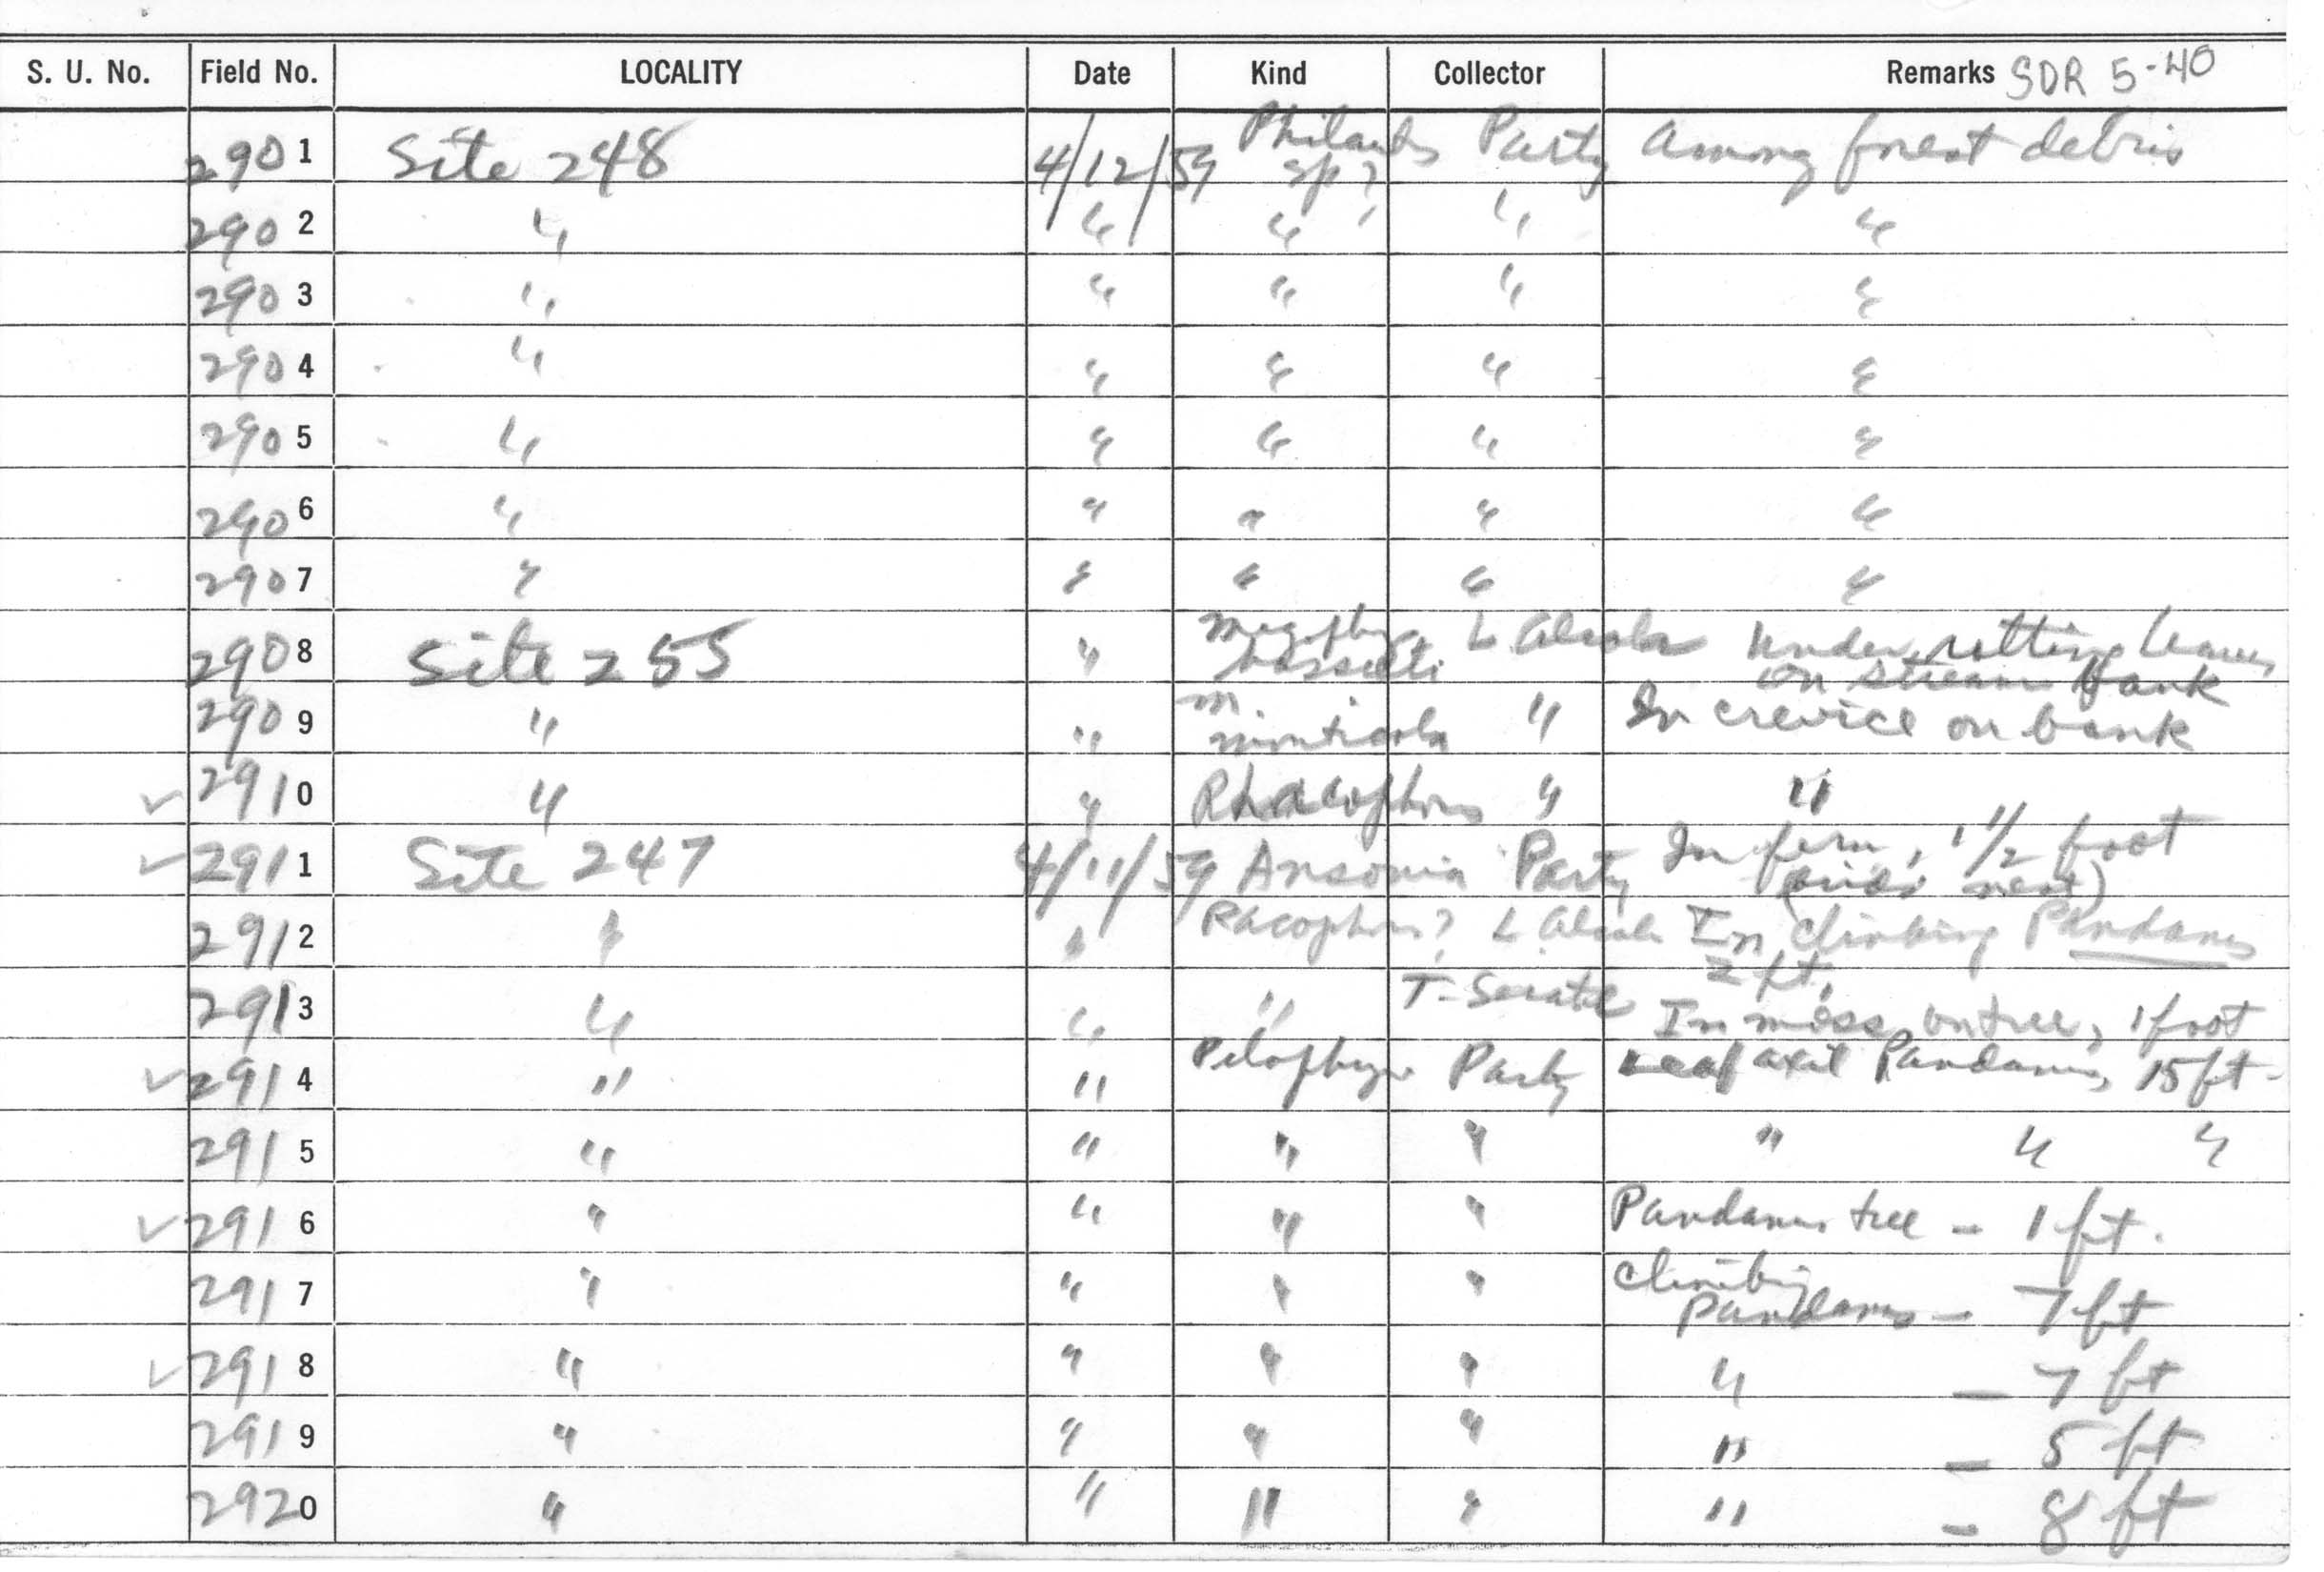 S. U. No. Field No. LOCALITY Date Kind Collector Remarks SDR 5-40
2901 Site 248 4/12/59 Philautus sp? Party Among forest debris
2902 " " " " "
2903 " " " " "
2904 " " " " "
2905 " " " " "
2906 " " " " "
2907 " " " " "
2908 Site 255 " L Alcala Under rotting leaves
on stream bank
2909 " " M. monticola " In crevice on bank
✓ 2910 " " Rhacophorus " "
✓ 2911 Site 247 4/11/59 Ansonia Party In fern, 1 1/2 foot
2912 " " Racophorus? L Alcala In climbing Pandanus
2 ft.
2913 " " " T. In moss on tree, 1 foot
✓ 2914 " " Pelophryne Party Leaf axil Pandanus, 15 ft.
2915 " " " " " " "
✓ 2916 " " " " Pandanus tree - 1 ft.
2917 " " " " Climbing
Pandanus - 7 ft
✓ 2918 " " " " " - 7 ft
2919 " " " " " - 5 ft
2920 " " " " " - 8 ft